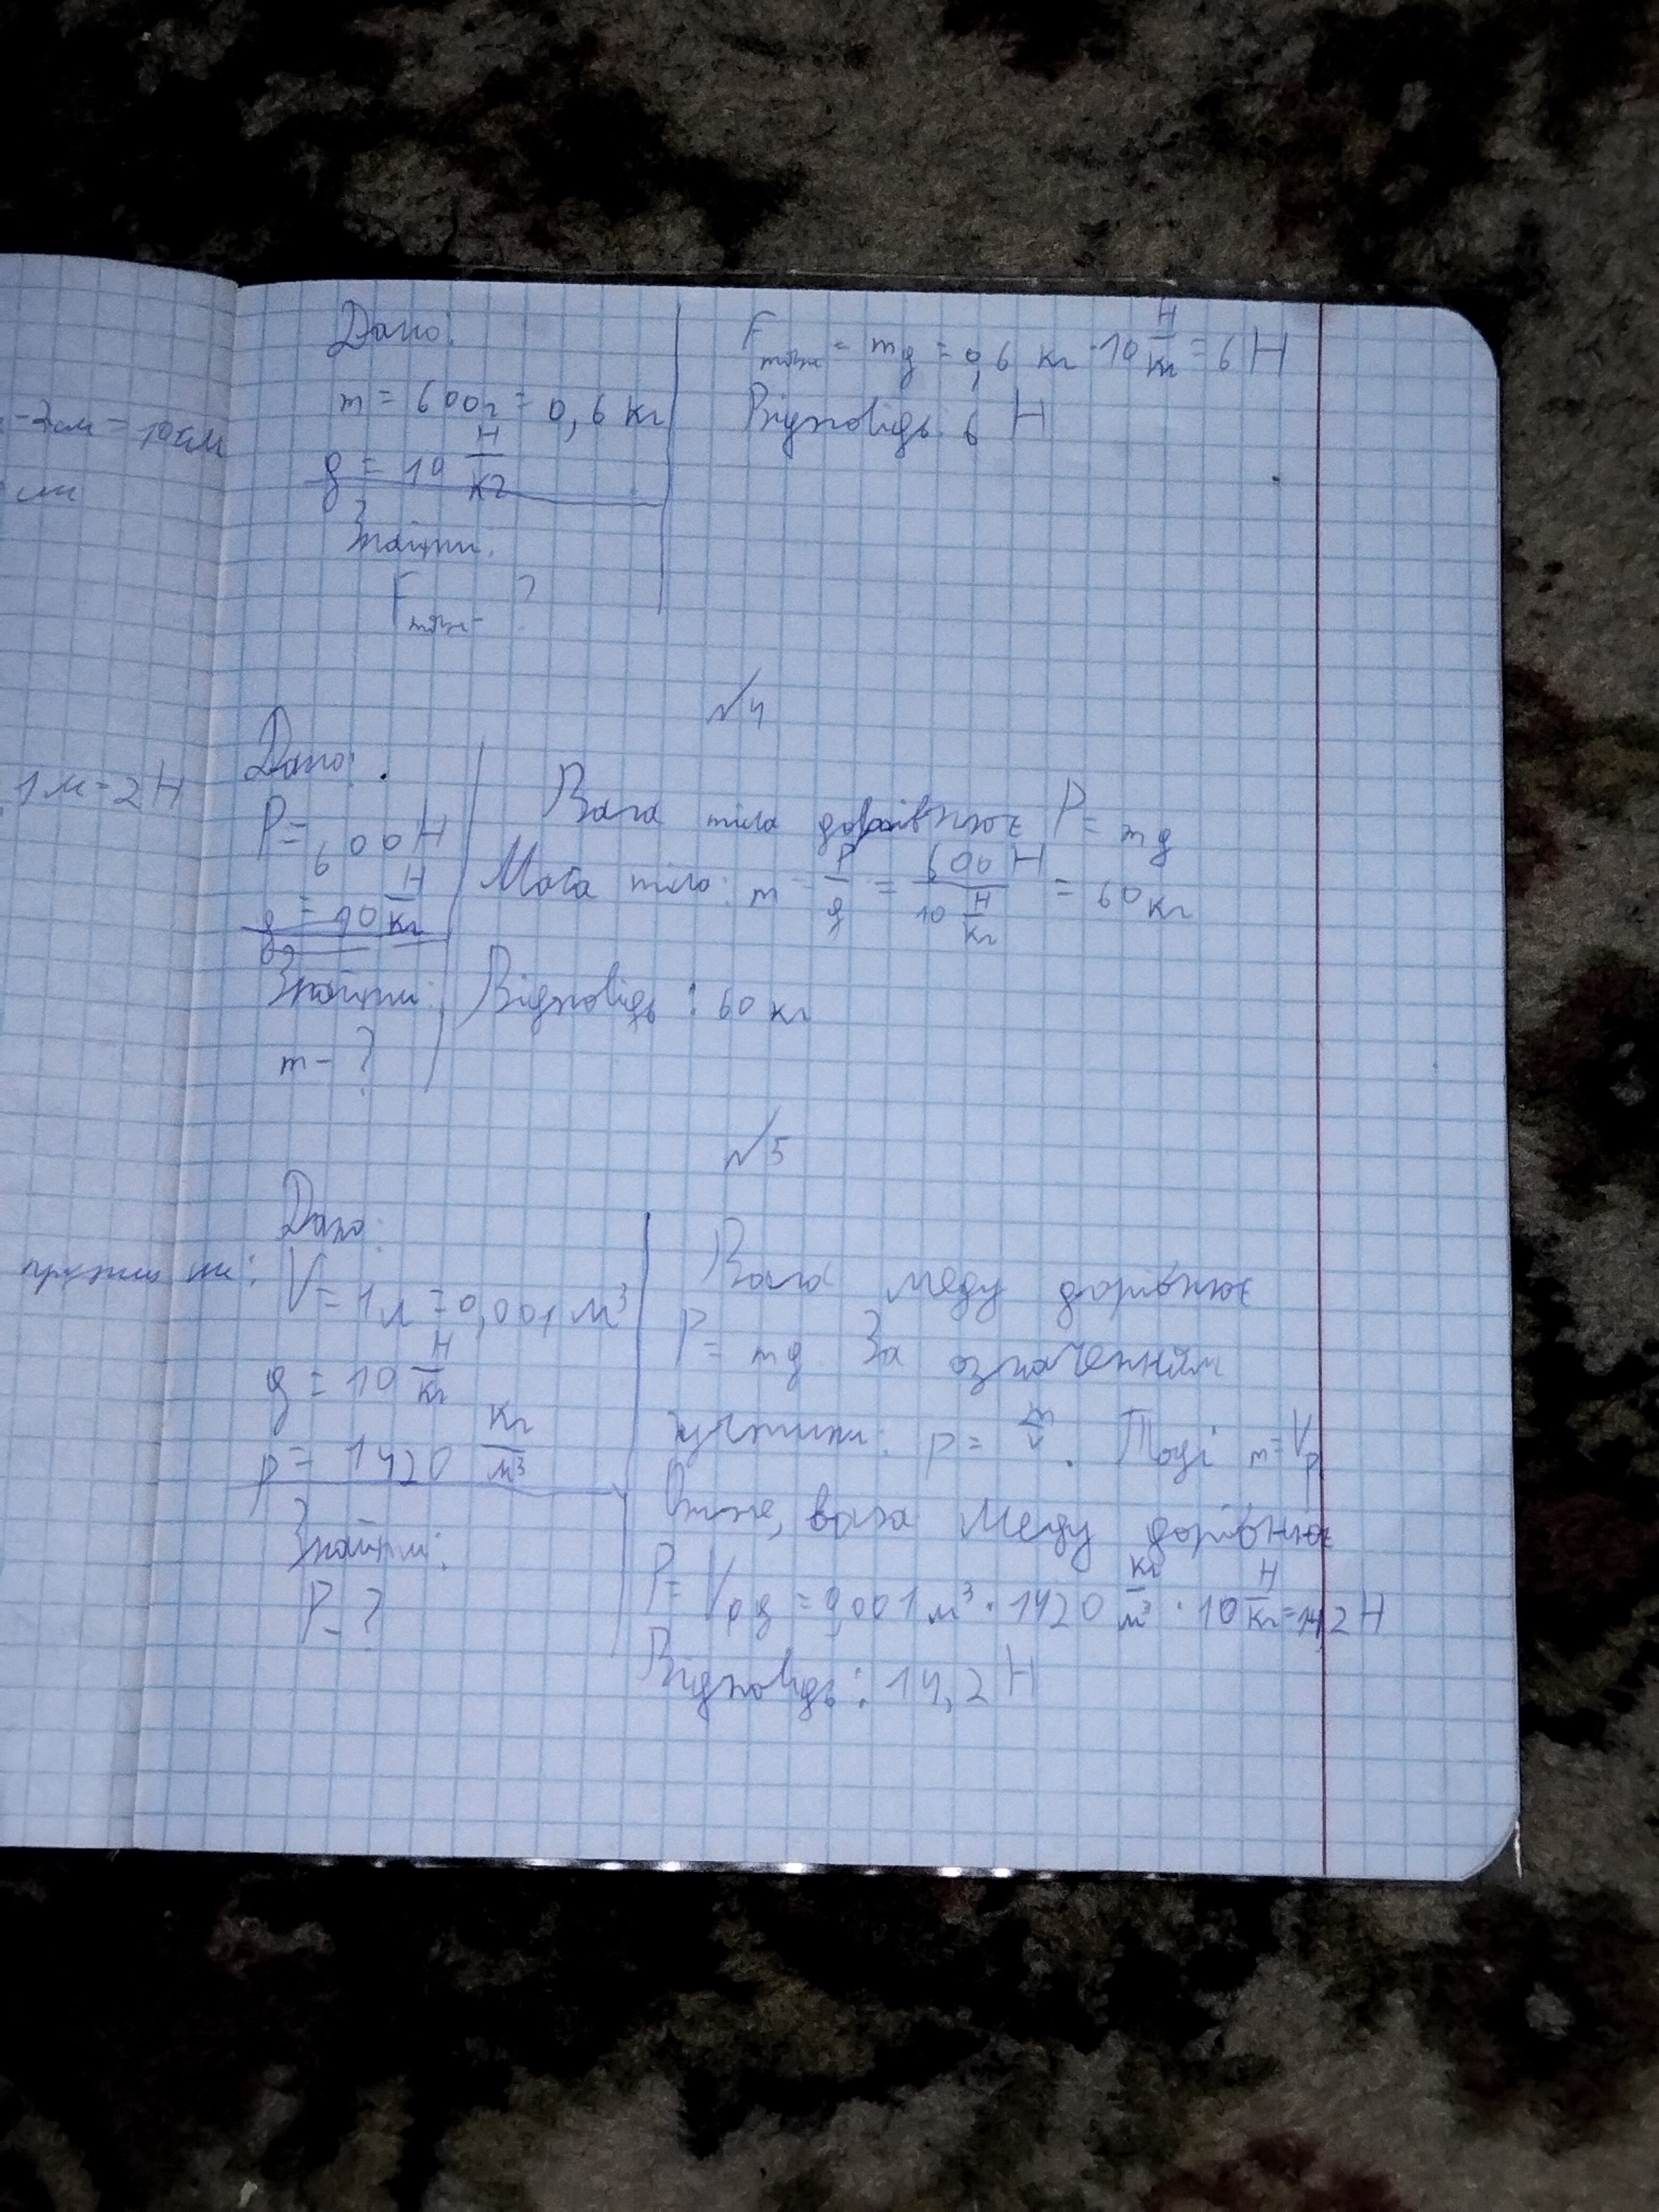 -2см = 10см
см
1м = 2Н
пружини:
Дано:
m = 600г = 0,6 кг
g = 10 Н/кг
Знайти:
Fтяж - ?
Fтяж = mg = 0,6 кг · 10 Н/кг = 6 Н
Відповідь: 6 Н
№4
Дано:
P = 600 Н
g = 10 Н/кг
Знайти:
m - ?
Вага тіла дорівнює P = mg
Маса тіла: m = P/g = 600 Н / 10 Н/кг = 60 кг
Відповідь: 60 кг
№5
Дано:
V = 1л = 0,001 м³
g = 10 Н/кг
ρ = 1420 кг/м³
Знайти:
P - ?
Вага меду дорівнює
P = mg. За означенням
густини: ρ = m/V. Тоді m = Vρ
Отже, вага меду дорівнює
P = Vρg = 0,001 м³ · 1420 кг/м³ · 10 Н/кг = 14,2 Н
Відповідь: 14,2 Н